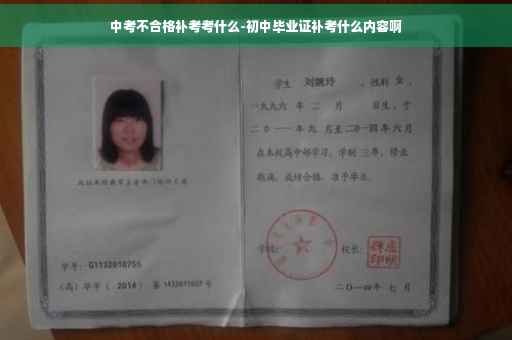 中考不合格补考考什么-初中毕业证补考什么内容啊
学生 刘婉玲 ,性别 女 ,
一九九六 年 二 月 日生,于
二〇一一 年 九 月至 二〇一四 年 六 月
在本校高中部学习,学制 三 年,修业
期满,成绩合格,准予毕业。
学号: G1132010755
(高)毕字( 2014 )第 1432011007 号
学校:
校长:
二〇一四年 七 月